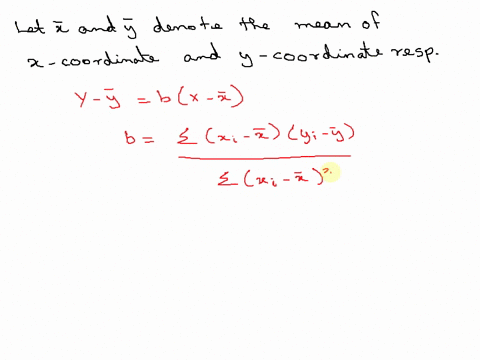 Let x̄ and ȳ denote the mean of
x-coordinate and y-coordinate resp.
Y - ȳ = b(x - x̄)
b = Σ(xᵢ - x̄)(yᵢ - ȳ)
Σ(xᵢ - x̄)²